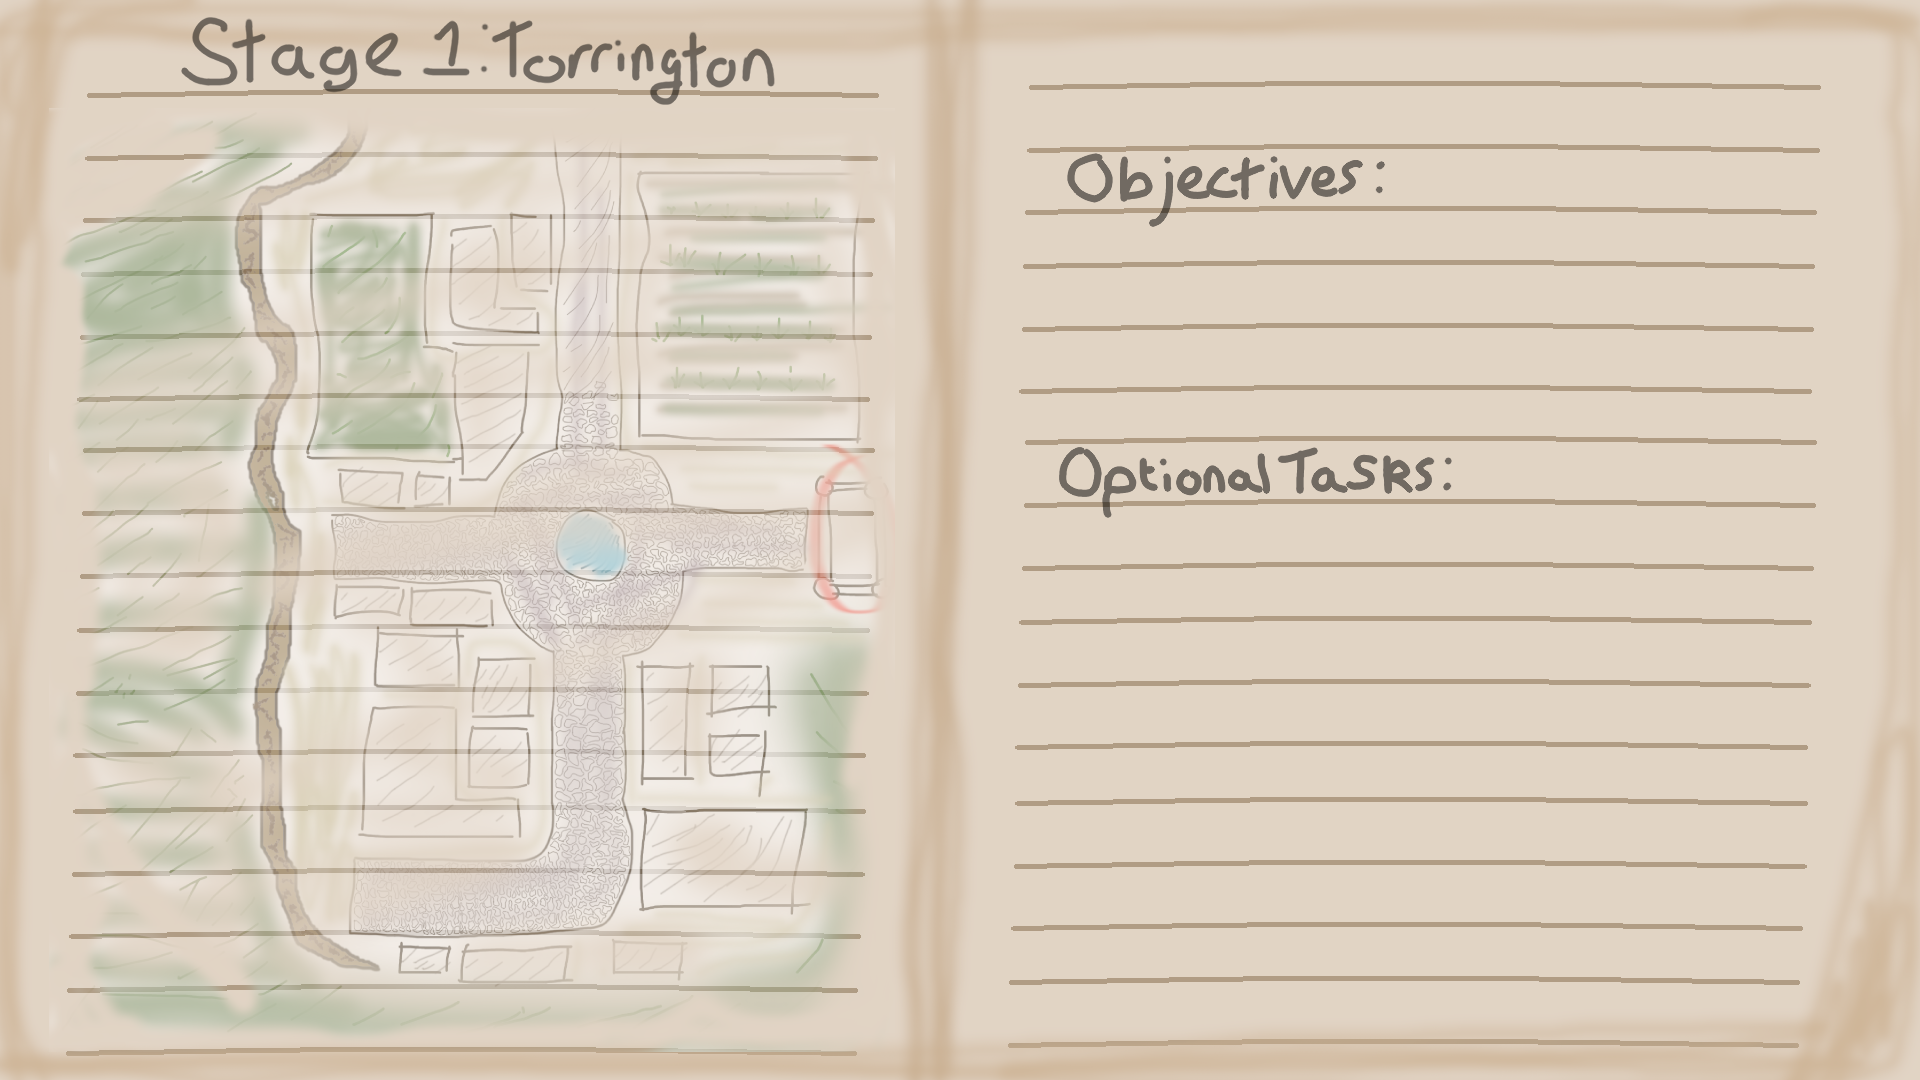 Stage 1: Torrington
Objectives:
Optional Tasks: